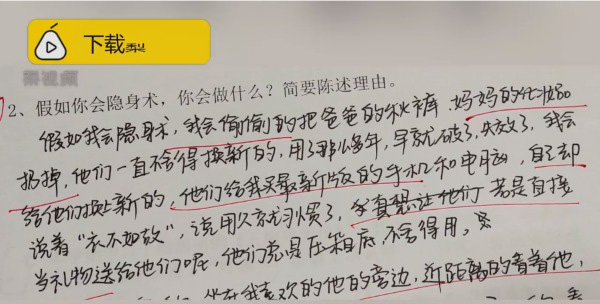 下载梨
梨视频
2、假如你会隐身术，你会做什么？简要陈述理由。
假如我会隐身术，我会偷偷的把爸爸的秋裤、妈妈的化妆品
扔掉，他们一直不舍得换新的，用了那么多年，早就破了，失效了，我会
给他们换上新的，他们给我买最新版的手机和电脑，自己却
说着“衣不如故”，说用久就习惯了，我真想让他们 若是直接
当礼物送给他们呢，他们总是压箱底，不舍得用。
坐在我喜欢的他的旁边，近距离的看着他，